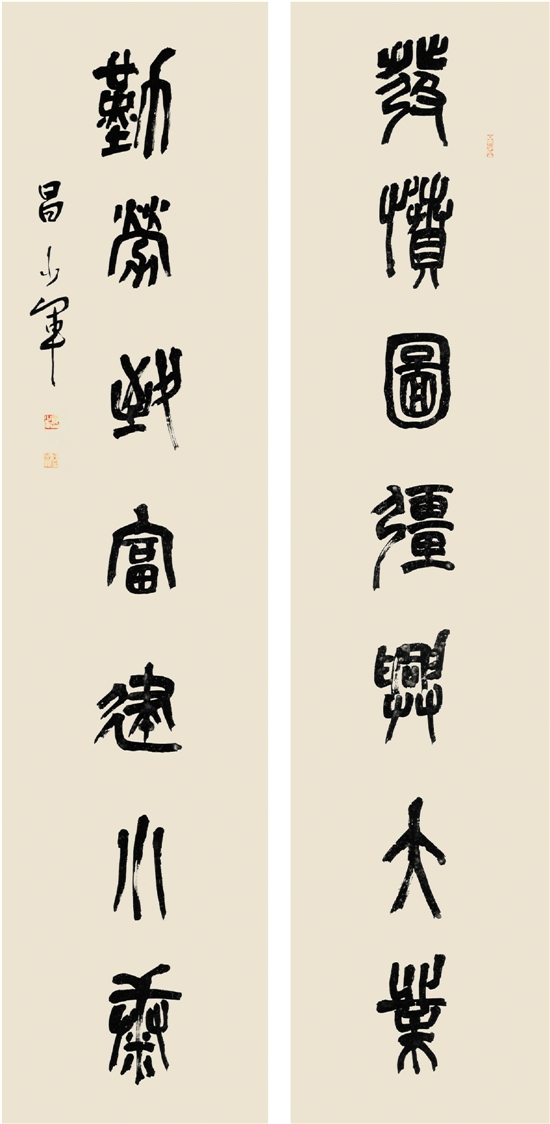 發憤圖彊興大業
勤勞致富建小康
昌少軍